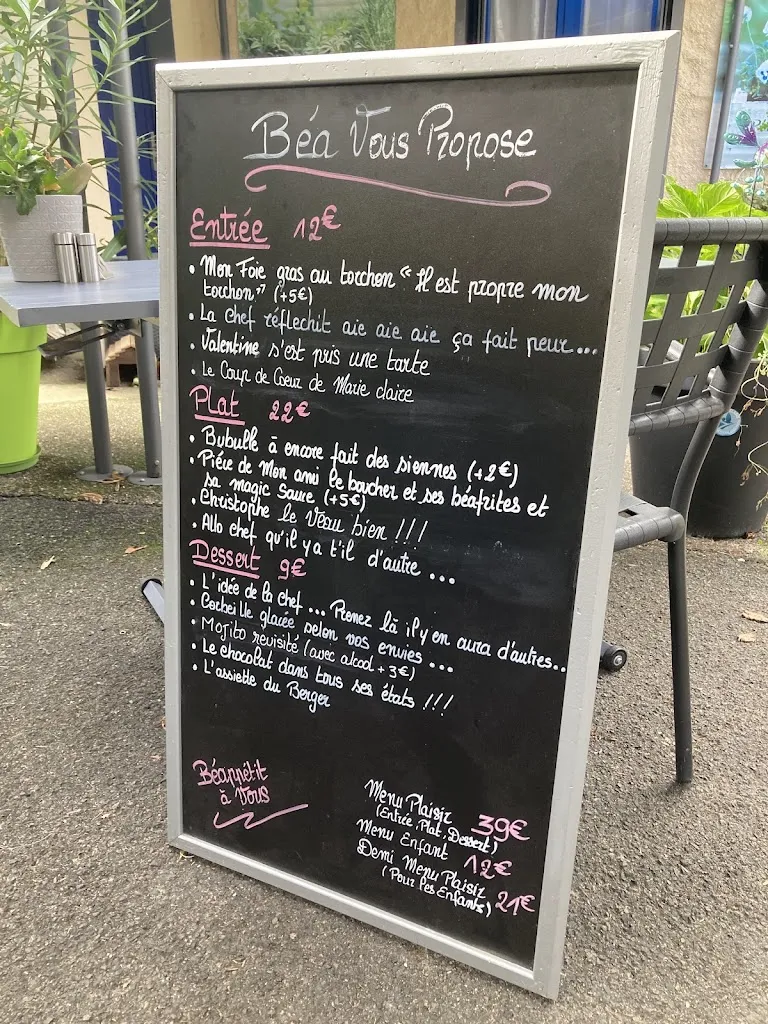 Béa Vous Propose
Entrée 12€
• Mon Foie gras au torchon "Il est propre mon
torchon" (+5€)
• La chef réflechit aie aie aie ça fait peur...
• Valentine s'est pris une tarte
• Le Coup de Coeur de Marie claire
Plat 22€
• Bubulle à encore fait des siennes (+2€)
• Piéce de Mon ami le boucher et ses béafrites et
sa magic Sauce (+5€)
• Christophe le Veau bien !!!
• Allo chef qu'il y a t'il d'autre ...
Dessert 9€
• L'idée de la chef ... Prenez là il y en aura d'autres...
• Corbeille glacée selon vos envies ...
• Mojito revisité (avec alcool +3€)
• Le chocolat dans tous ses états !!!
• L'assiette du Berger
Béappétit
à Vous
Menu Plaisir 39€
(Entrée, Plat, Dessert)
Menu Enfant 12€
Demi Menu Plaisir
(Pour les Enfants) 21€